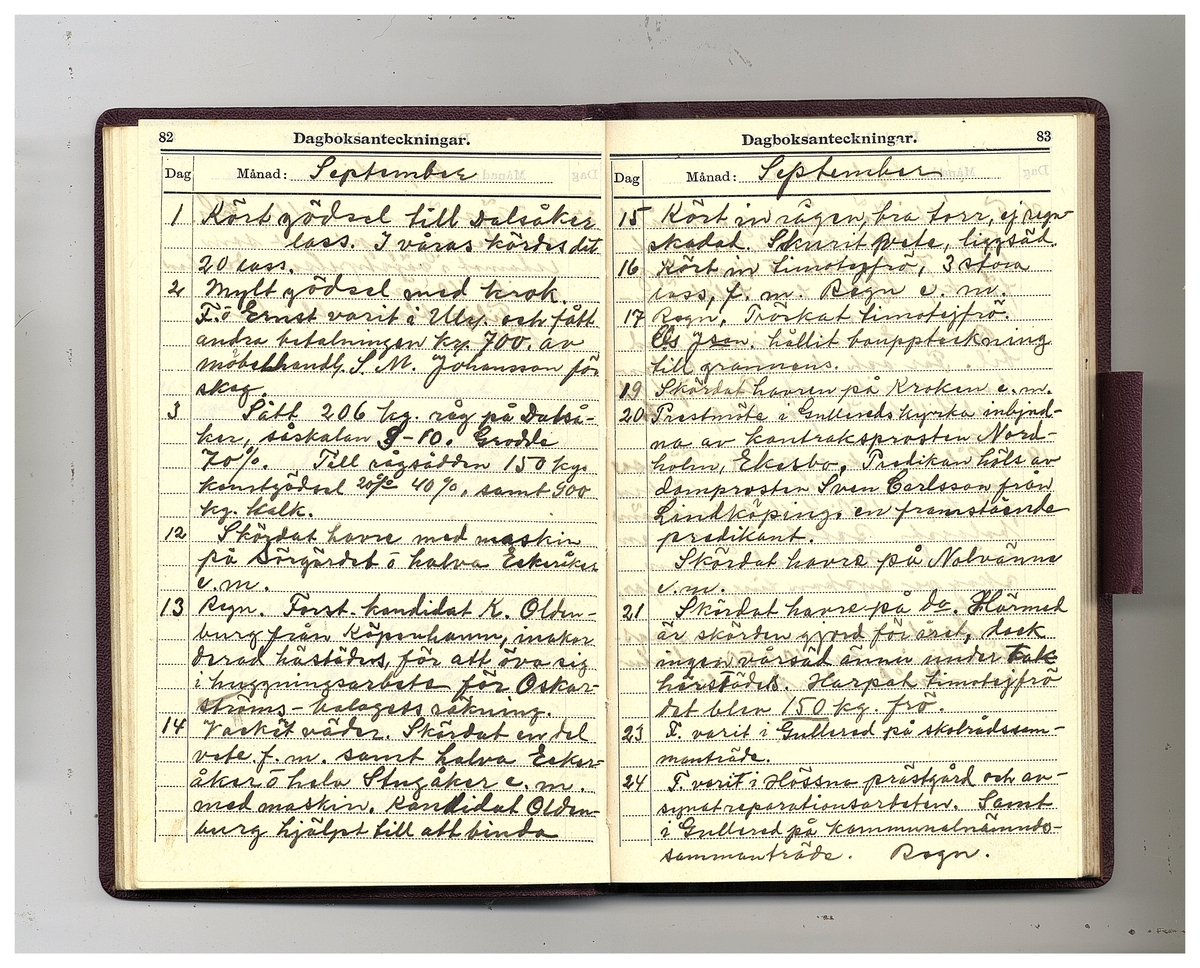 82 Dagboksanteckningar.
Dag Månad: September
1 Kört gödsel till Dalsåker
lass. I våras kördes dit
20 lass.
2 Mylt gödsel med krok.
F. o Ernst varit i Ulr. och fått
andra betalningen kr. 700. av
möbelhandl. S. M. Johansson för
skog.
3 Sått 206 kg. råg på Dalså-
ker, såskalan 9-80. Grodde
70%. Till rågsådden 150 kg.
konstgödsel 20% 40%, samt 900
kg. Kalk.
12 Skördat havre med maskin
på Sörgärdet o halva Ekeråker
e.m.
13 Regn. Forst-kandidat K. Olden-
burg från Köpenhamn, inakor
derad härstädes, för att öva sig
i huggningsarbete för Oskar-
ströms-bolagets räkning.
14 Vackert väder. Skördat en del
vete f.m. samt halva Eker-
åker o hela Stugåker e.m.
med maskin. Kandidat Olden-
burg hjälpt till att binda
83 Dagboksanteckningar.
Dag Månad: September
15 Kört in rågen, bra torr, ej regn-
skadat. Skurit vete, liggsäd.
16 Kört in timotejfrö, 3 stora
lass, f.m. Regn e.m.
17 Regn. Tröskat timotejfrö.
Js-on. hållit bouppteckning
till grannens.
19 Skördat havren på Kroken e.m.
20 Prestmöte i Gullereds kyrka inbjud-
na av kontraksprosten Nord-
holm, Ekesbo. Predikan höls av
domprosten Sven Carlsson från
Lindköping, en framstående
predikant.
Skördat havre på Nolvänna
e.m.
21 Skördat havre på do. Härmed
är skörden gjord för året, dock
ingen vårsäd ännu under tak
härstädes. Harpat timotejfrö
det blev 150 kg. frö.
23 F. varit i Gullered på skolrådssam-
manträde.
24 F. varit i Hössna prästgård och av-
synat reparationsarbeten. Samt
i Gullered på kommunalnämnds-
sammanträde. Regn.